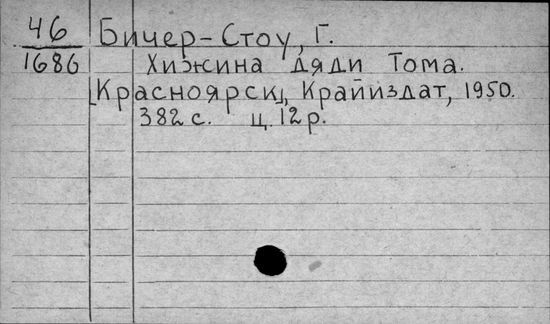 46 Бичер-Стоу, Г.
1686 Хижина дяди Тома.
[Красноярск], Крайиздат, 1950.
382 с. ц. 12 р.